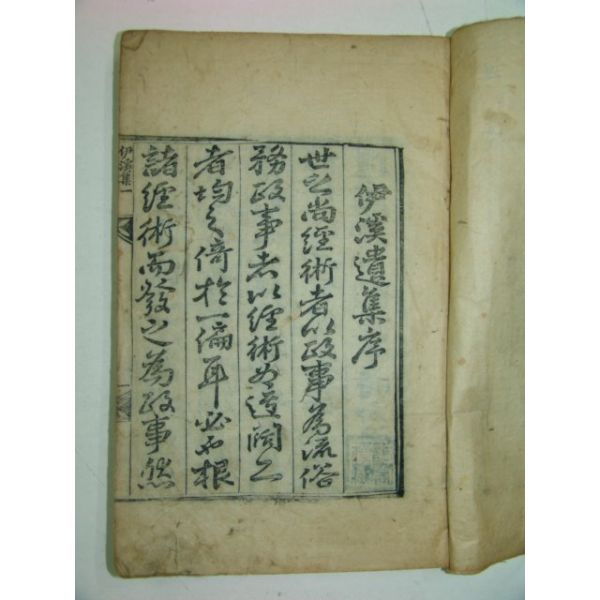 伊溪遺集序
世之尚經術者以政事為流俗
務政事者以經術為迂闊二
者均之倚於一偏耳必也根
諸經術而發之為政事然
伊溪集